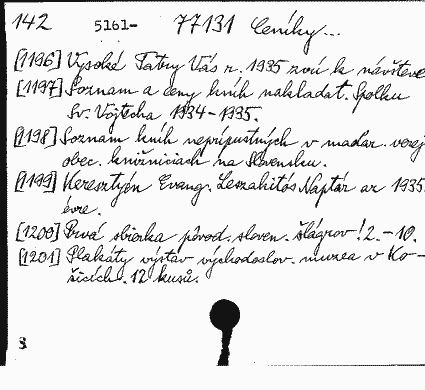 142 5161- 77131 Ceníky...
[1196] Vysoké Tatry Vás r. 1935 zvú k návšteve
[1197] Soznam a ceny kníh nakladat. Spolku
Sv. Vojtecha 1934-1935.
[1198] Soznam kníh neprípustných v maďar. verej
obec. knižniciach na Slovensku.
[1199] Keresztyén Evang. Leszakitós Naptár az 1935.
évre.
[1200] Prvá sbierka pôvod. sloven. šlágrov! 2.-10.
[1201] Plakáty výstav východoslov. muzea v Ko-
šicích. 12 kusů.
8